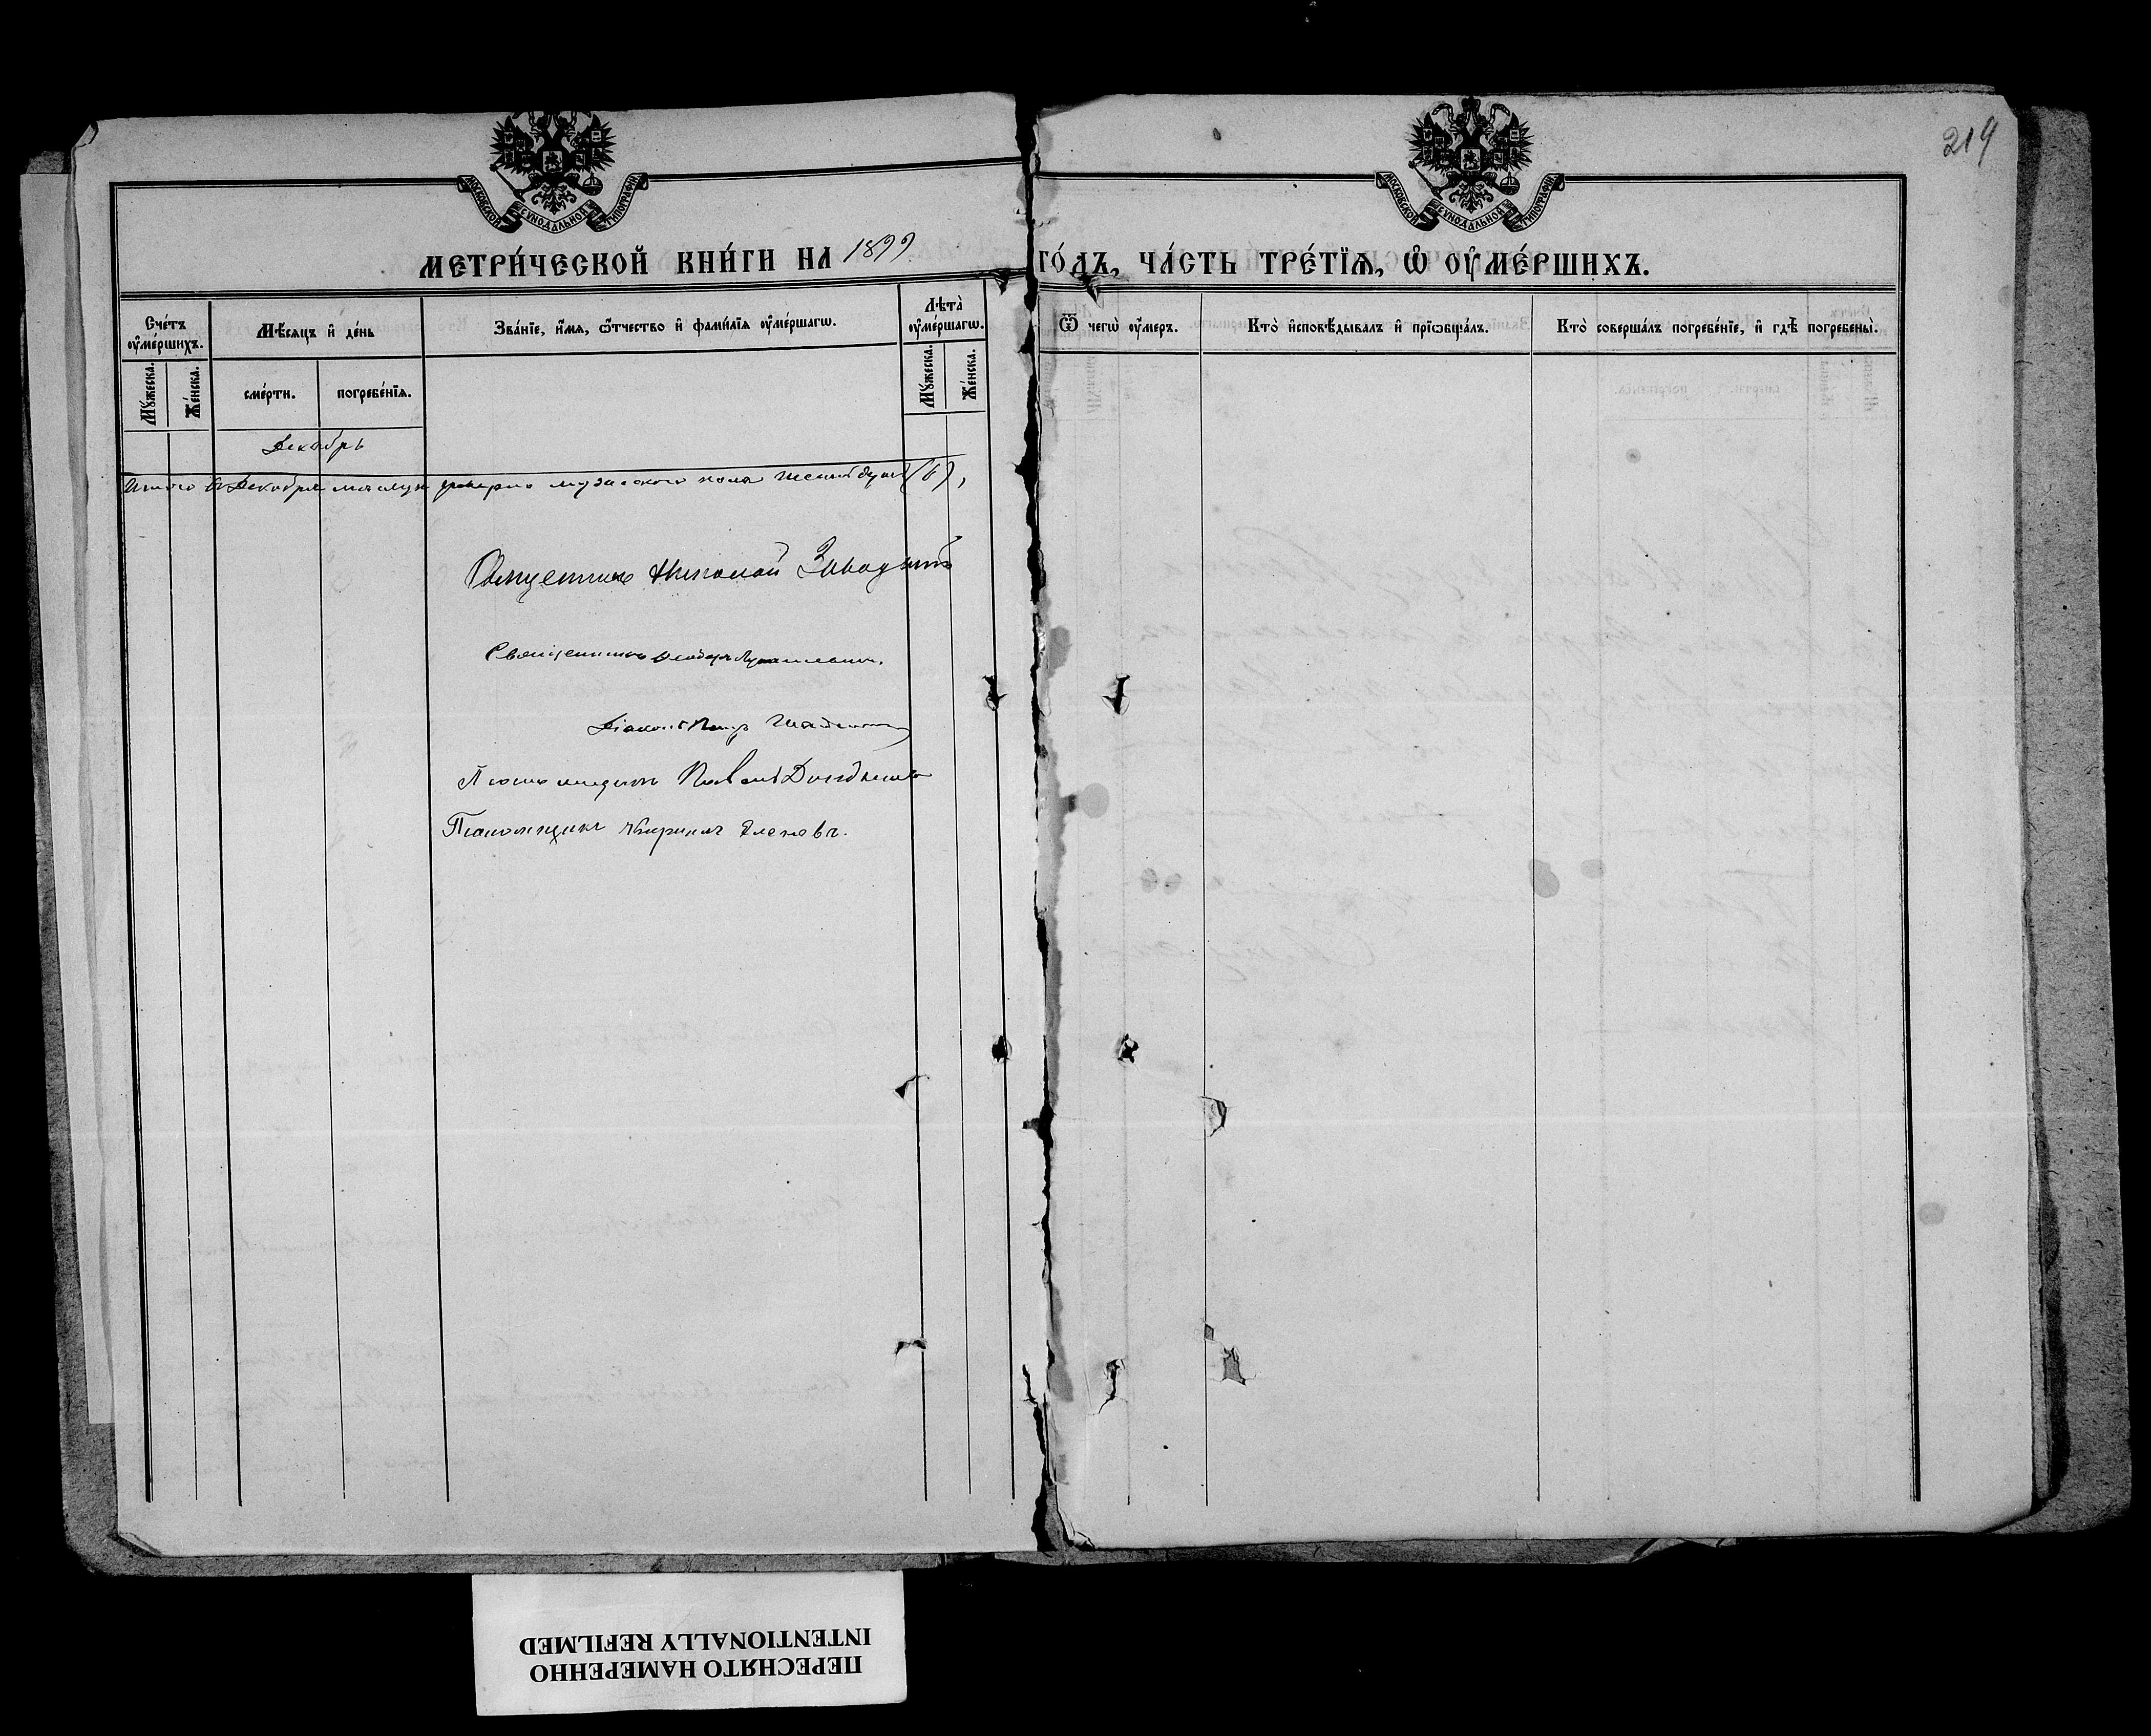 МОСКОВСКОЙ СУНОДАЛЬНОЙ ТИПОГРАФІИ
МОСКОВСКОЙ СУНОДАЛЬНОЙ ТИПОГРАФІИ
219
МЕТРИ́ЧЕСКОЙ КНИ́ГИ НА 1899 ГО́ДЪ, ЧА́СТЬ ТРЕ́ТЇѦ, Ѽ ОУ҆МЕ́РШИХЪ.
Сче́тъ оу҆ме́ршихъ.
Мѣ́сяцъ и҆ де́нь
Зва́нїе, и҆́мѧ, ѻ҆́тчество и҆ фами́лїѧ оу҆ме́ршагѡ.
Лѣта̀ оу҆ме́ршагѡ.
Ѿ чегѡ̀ оу҆́меръ.
Кто̀ и҆сповѣ́дывалъ и҆ прїѡбща́лъ.
Кто̀ соверша́лъ погребе́нїе, и҆ гдѣ̀ погребены̀.
Мꙋ́жеска.
Же́нска.
сме́рти.
погребе́нїѧ.
Мꙋ́жеска.
Же́нска.
Декабрь
Итого въ Декабрѣ мѣсяцѣ умерло мужескаго пола шесть душъ (6),
Священникъ Николай
Священникъ
Діаконъ Петръ
Псаломщикъ Павелъ
Псаломщикъ Кириллъ
ПЕРЕСНЯТО НАМЕРЕННО
INTENTIONALLY REFILMED